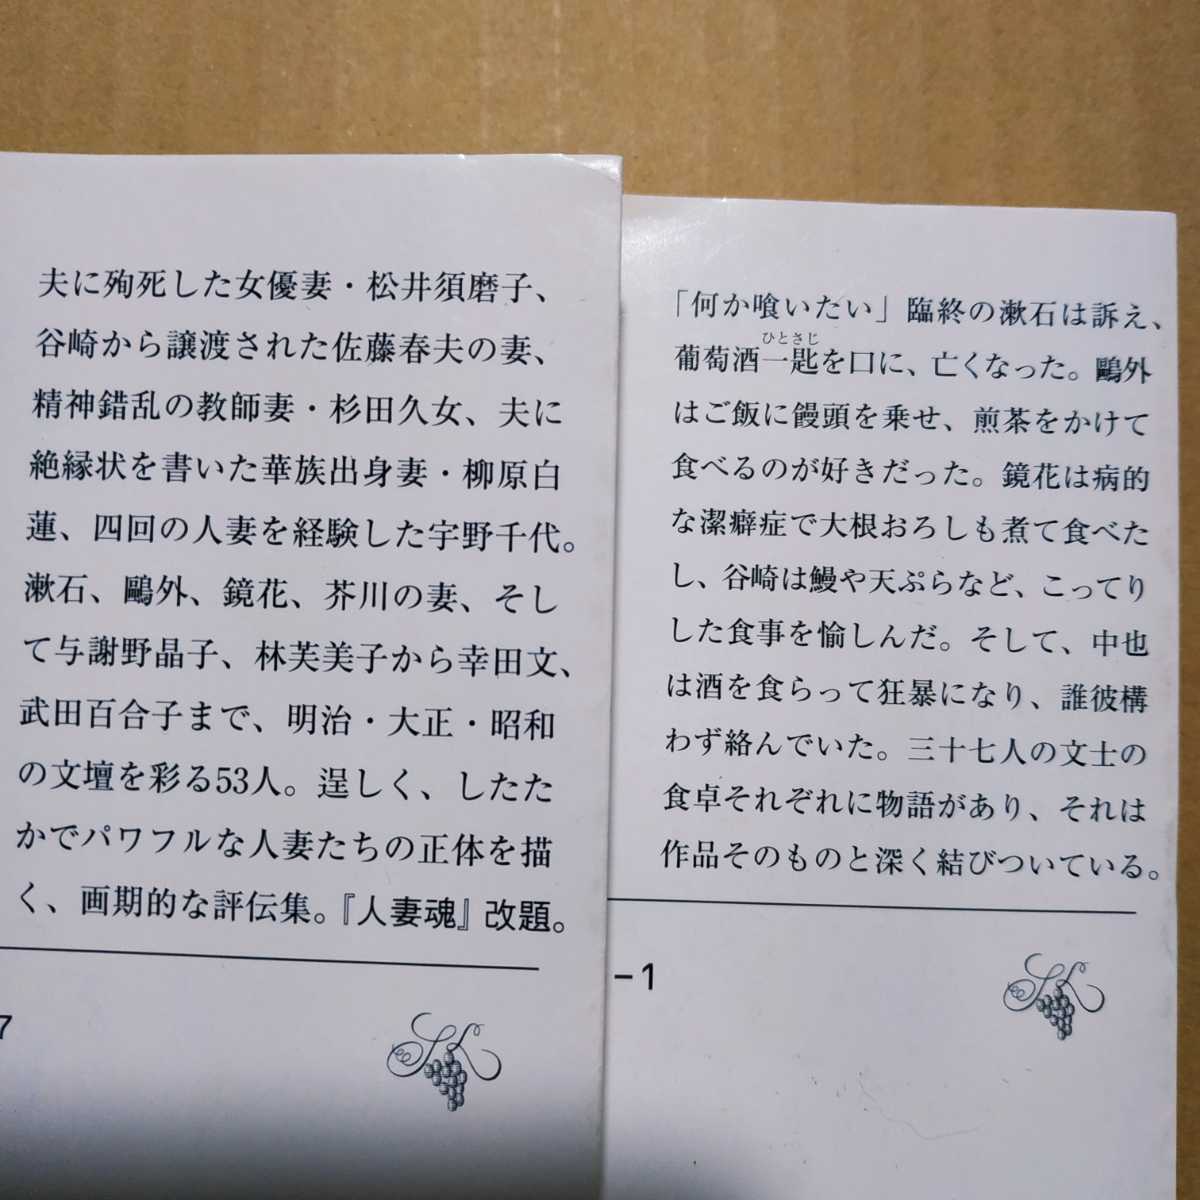 夫に殉死した女優妻・松井須磨子、
谷崎から譲渡された佐藤春夫の妻、
精神錯乱の教師妻・杉田久女、夫に
絶縁状を書いた華族出身妻・柳原白
蓮、四回の人妻を経験した宇野千代。
漱石、鷗外、鏡花、芥川の妻、そし
て与謝野晶子、林芙美子から幸田文、
武田百合子まで、明治・大正・昭和
の文壇を彩る53人。逞しく、したた
かでパワフルな人妻たちの正体を描
く、画期的な評伝集。『人妻魂』改題。
7
「何か喰いたい」臨終の漱石は訴え、
ひとさじ
葡萄酒一匙を口に、亡くなった。鷗外
はご飯に饅頭を乗せ、煎茶をかけて
食べるのが好きだった。鏡花は病的
な潔癖症で大根おろしも煮て食べた
し、谷崎は鰻や天ぷらなど、こってり
した食事を愉しんだ。そして、中也
は酒を食らって狂暴になり、誰彼構
わず絡んでいた。三十七人の文士の
食卓それぞれに物語があり、それは
作品そのものと深く結びついている。
-1